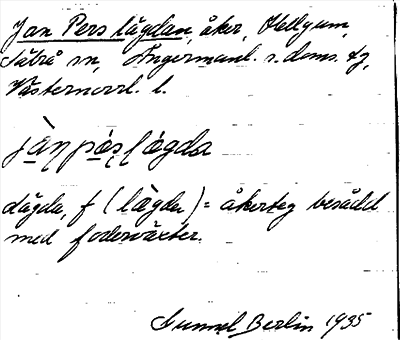 Jan Pers lägdan, åker, Hellgum,
Sållrå sn, Ångermanl. s. doms. hg,
Västernorrl. l.
jànpæ̀ʂlǿgda
Lägda, f (lǽgda) = åkerteg besådd
med foderväxter.
Gunnel Berlin 1935